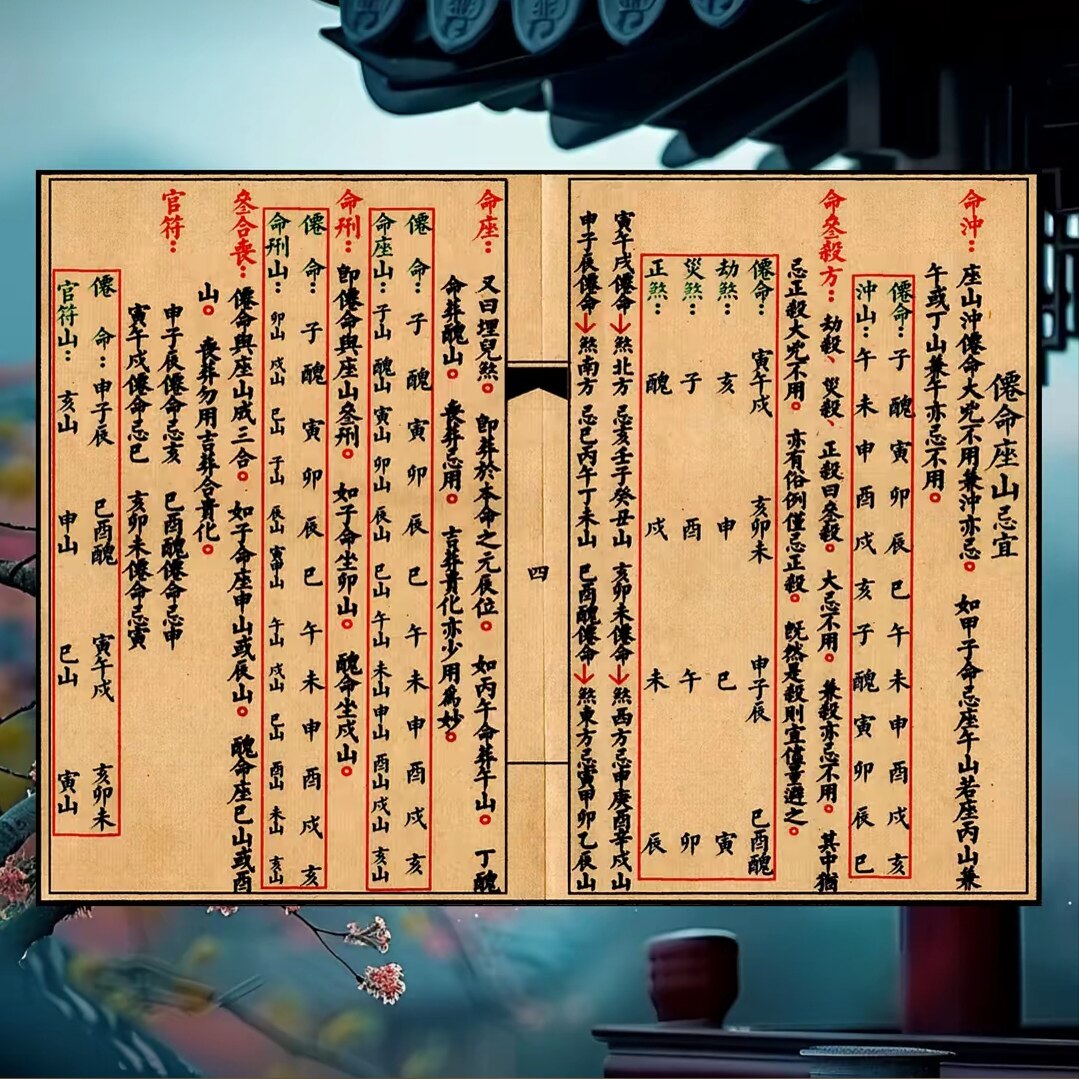 僊命座山忌宜
命沖：座山沖僊命大兇不用兼沖亦忌。如甲子命忌座午山若座丙山兼
午或丁山兼午亦忌不用。
僊命：子醜寅卯辰巳午未申酉戌亥
沖山：午未申酉戌亥子醜寅卯辰巳
命叄殺方：劫殺、災殺、正殺曰叄殺。大忌不用。兼殺亦忌不用。其中猶
忌正殺大兇不用。亦有俗例僅忌正殺。既然是殺則宜慎重避之。
僊命：寅午戌 亥卯未 申子辰 巳酉醜
劫煞：亥 申 巳 寅
災煞：子 酉 午 卯
正煞：醜 戌 未 辰
寅午戌僊命↓煞北方 忌亥壬子癸丑山 亥卯未僊命↓煞西方忌申庚酉辛戌山
申子辰僊命↓煞南方 忌巳丙午丁未山 巳酉醜僊命↓煞東方忌寅甲卯乙辰山
四
命座：又曰埋兒煞。即葬於本命之元辰位。如丙午命葬午山。丁醜
命葬醜山。喪葬忌用。吉葬貴化亦少用為妙。
僊命：子醜寅卯辰巳午未申酉戌亥
命座山：子山 醜山 寅山 卯山 辰山 巳山 午山 未山 申山 酉山 戌山 亥山
命刑：即僊命與座山叄刑。如子命坐卯山。醜命坐戌山。
僊命：子醜寅卯辰巳午未申酉戌亥
命刑山：卯山 戌山 巳山 子山 辰山 寅申山 午山 戌山 巳山 酉山 未山 亥山
叄合喪：僊命與座山成三合。如子命座申山或辰山。醜命座巳山或酉
山。喪葬勿用吉葬合貴化。
官符：申子辰僊命忌亥 巳酉醜僊命忌申
寅午戌僊命忌巳 亥卯未僊命忌寅
僊命：申子辰 巳酉醜 寅午戌 亥卯未
官符山：亥山 申山 巳山 寅山